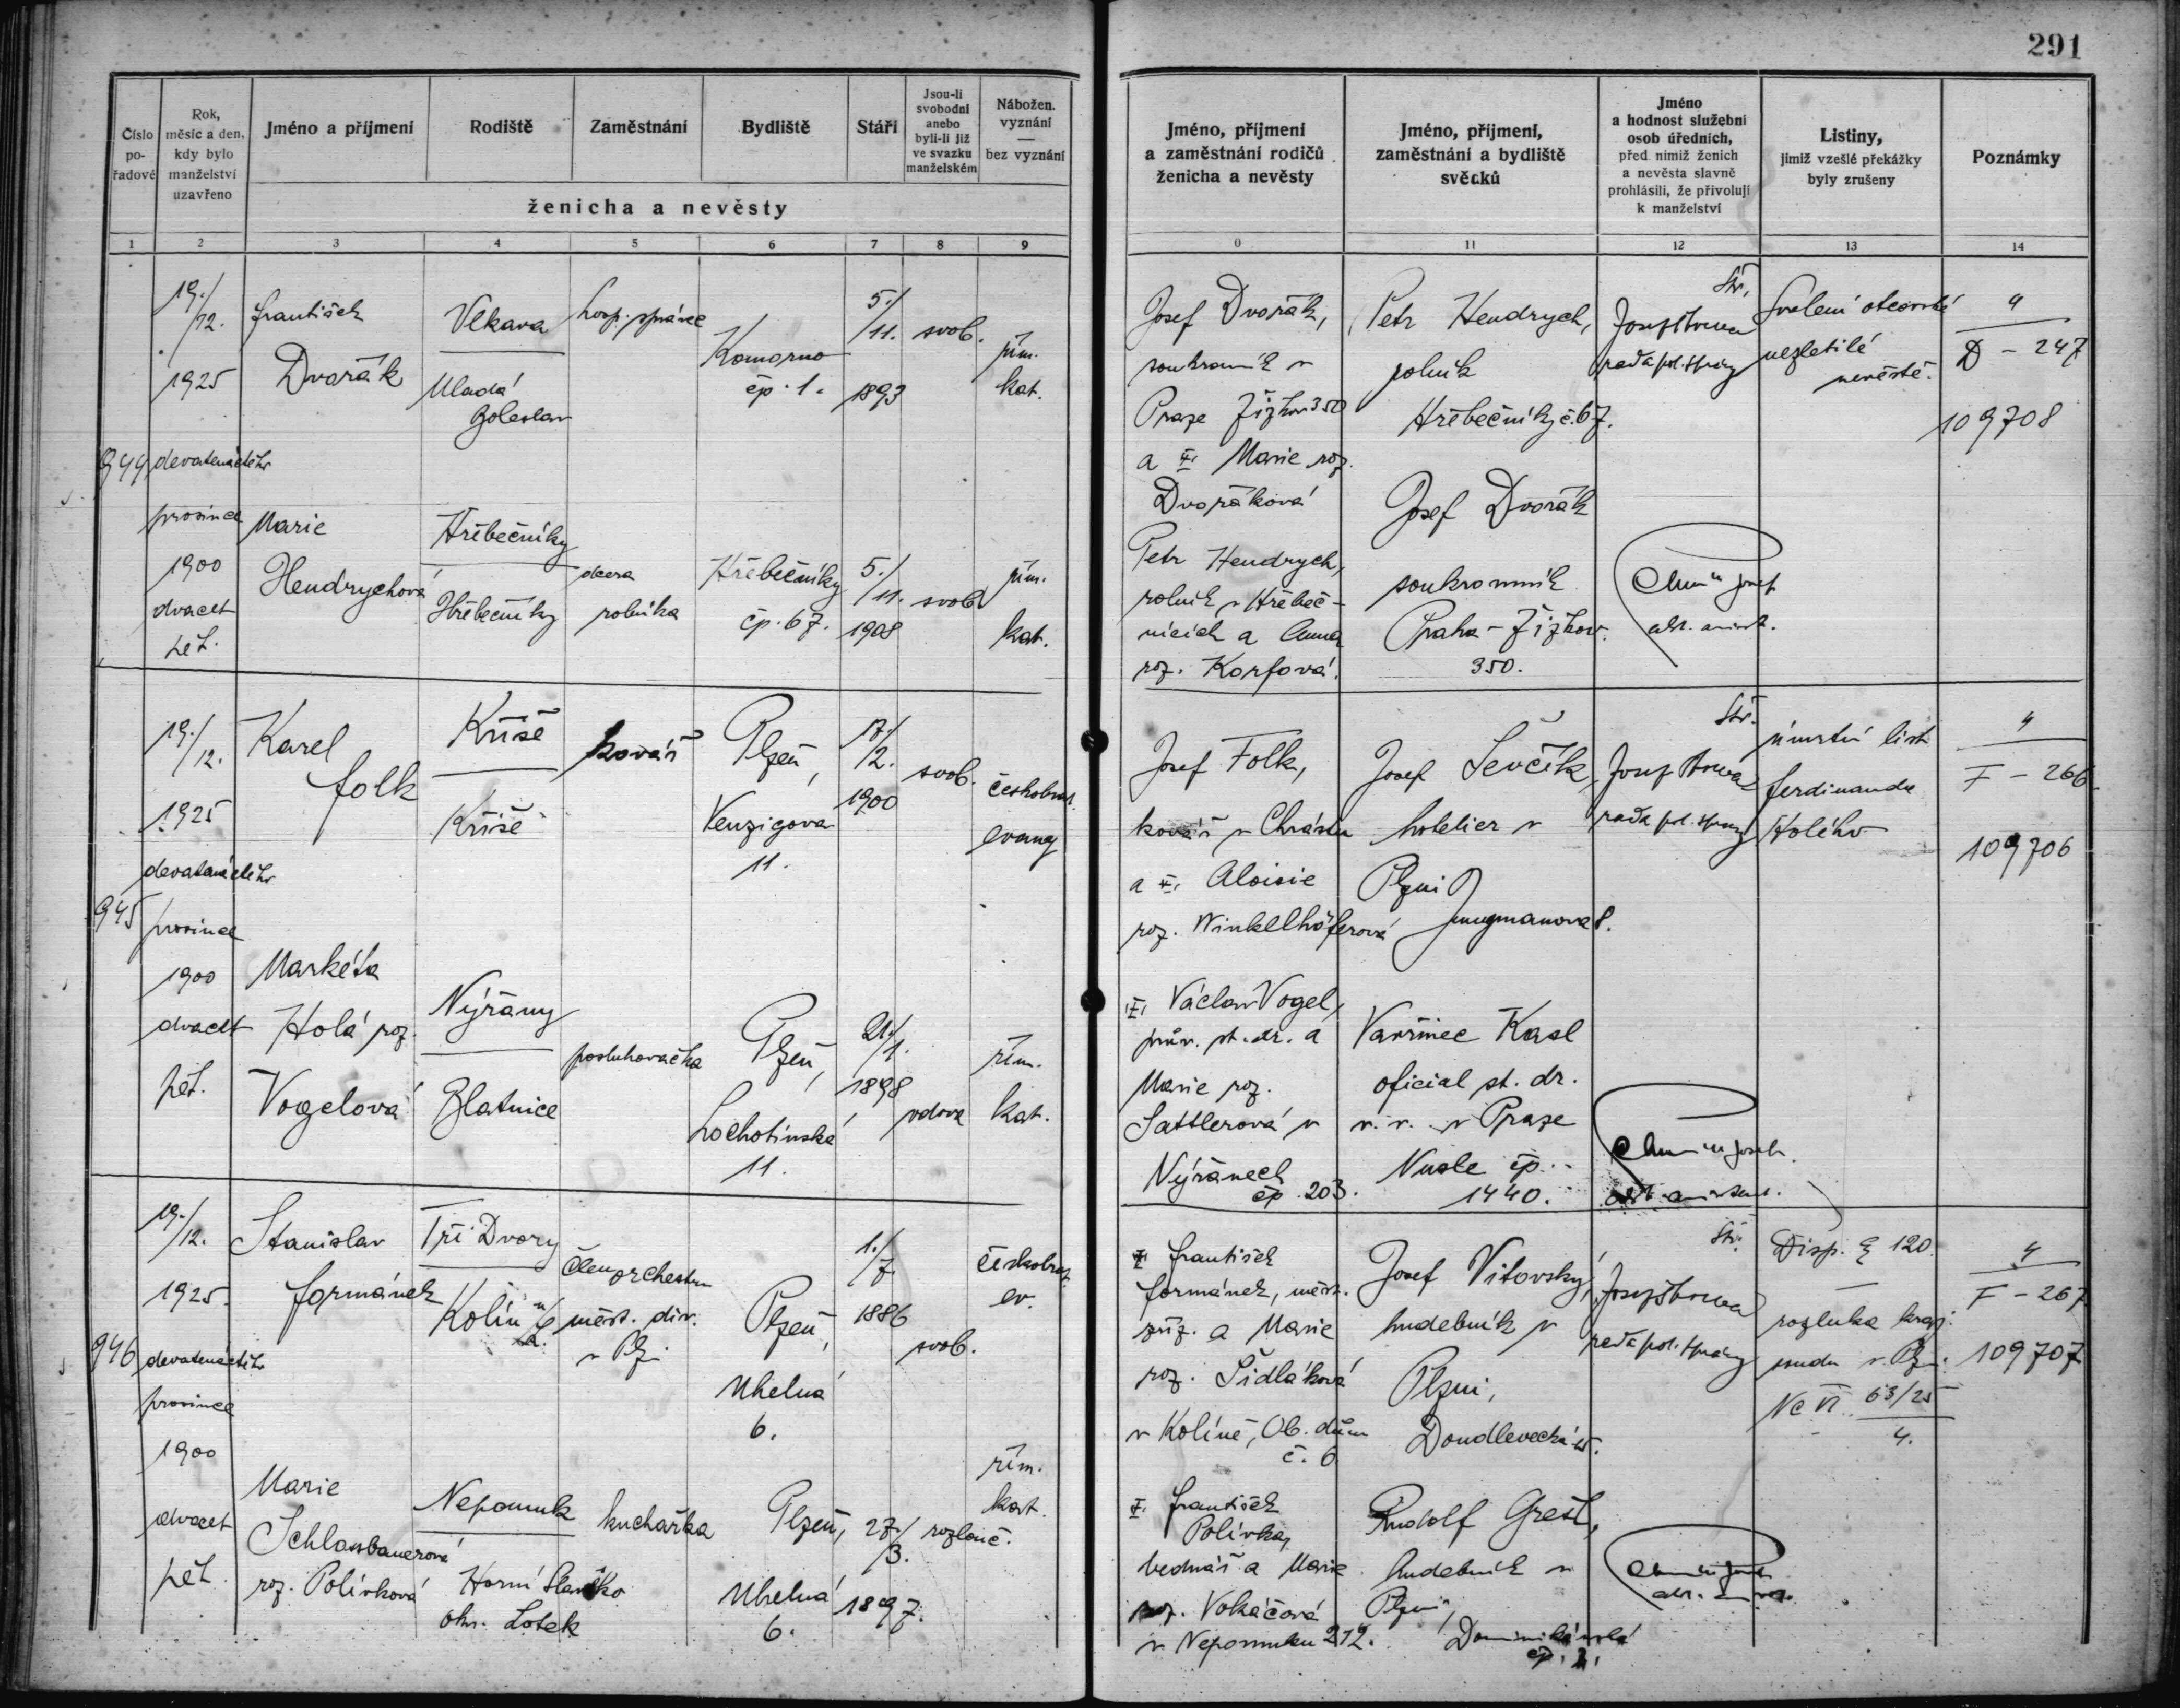 291
Číslo po-řadové
Rok, měsíc a den, kdy bylo manželství uzavřeno
Jméno a příjmení
Rodiště
Zaměstnání
Bydliště
Stáří
Jsou-li svobodni anebo byli-li již ve svazku manželském
Nábožen. vyznání — bez vyznání
ženicha a nevěsty
Jméno, příjmení a zaměstnání rodičů ženicha a nevěsty
Jméno, příjmení, zaměstnání a bydliště svědků
Jméno a hodnost služební osob úředních, před nimiž ženich a nevěsta slavně prohlásili, že přivolují k manželství
Listiny, jimiž vzešlé překážky byly zrušeny
Poznámky
1 2 3 4 5 6 7 8 9 0 11 12 13 14
944
19./12.
1925
devatenáctého
prosince
1900
dvacet
pět.
František
Dvořák
Vlkava
Mladá
Boleslav
hosp. správce
Komorno
čp. 1.
5./11.
1893
svob.
řím.
kat.
Marie
Hendrychová
Hřebečníky
Hřebečníky
dcera
rolníka
Hřebečníky
čp. 67.
5./11.
1908
svob.
řím.
kat.
Josef Dvořák,
soukromník v
Praze Žižkov 350
a Marie roz.
Dvořáková
Petr Hendrych,
rolník v Hřebeč-
nicích a Anna
roz. Korfová.
Petr Hendrych,
rolník
Hřebečníky č. 67.
Josef Dvořák
soukromník
Praha - Žižkov.
350.
rada pol. správy
Svolení otcovské
nezletilé
nevěstě.
4
D - 247
109708
945
19./12.
1925
devatenáctého
prosince
1900
dvacet
pět.
Karel
Folk
Kříše
Kříše
kovář
Plzeň,
Kenzigova
11.
17./2.
1900
svob.
českobrat.
evang
Markéta
Holá roz.
Vogelová
Nýřany
Blatnice
posluhovačka
Plzeň,
Lochotínská
11.
21./1.
1898
vdova
řím.
kat.
Josef Folk,
kovář v Chrástu
a Aloisie
roz. Winkelhöferová
Václav Vogel,
prův. st. dr. a
Marie roz.
Sattlerová v
Nýřanech
čp. 203.
Josef Ševčík,
hotelier v
Plzni
Jungmanova 8.
Vavřinec Kasl
oficial st. dr.
v. v. v Praze
Nusle čp.
1440.
rada pol. správy
úmrtní list
Ferdinanda
Holého
4
F - 266
109706
946
19./12.
1925.
devatenáctého
prosince
1900
dvacet
pět.
Stanislav
Formánek
Tři Dvory
Kolín n/L.
člen orchestru
měst. div.
v Plz.
Plzeň,
Uhelná
6.
1./7.
1886
svob.
českobrat.
ev.
Marie
Schlossbauerová
roz. Polívková
Nepomuk
Horní Slavkov
okr. Loket
kuchařka
Plzeň,
Uhelná
6.
27./3.
1897.
rozlouč.
řím.
kat.
František
Formánek, měst.
zříz. a Marie
roz. Šidláková
v Kolíně, Ob. dům
č. 6
František
Polívka,
bednář a Marie
roz. Vokáčová
v Nepomuku 212.
Josef Vitovský,
hudebník v
Plzni,
Doudlevecká 15.
Rudolf Grestl,
hudebník v
Plzni,
Dominikánská
čp. 1.
rada pol. správy
Disp. § 120.
rozluka kraj.
soudu v Plzni.
Nc VI 63/25
4.
4
F - 267
109707